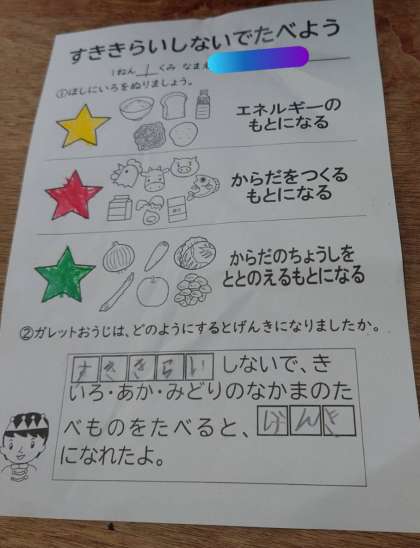 すききらいしないでたべよう
1ねん 1 くみ なまえ
①ほしにいろをぬりましょう。
エネルギーの
もとになる
からだをつくる
もとになる
からだのちょうしを
ととのえるもとになる
②ガレットおうじは、どのようにするとげんきになりましたか。
すききらいしないで、き
いろ・あか・みどりのなかまのた
べものをたべると、げんき
になれたよ。